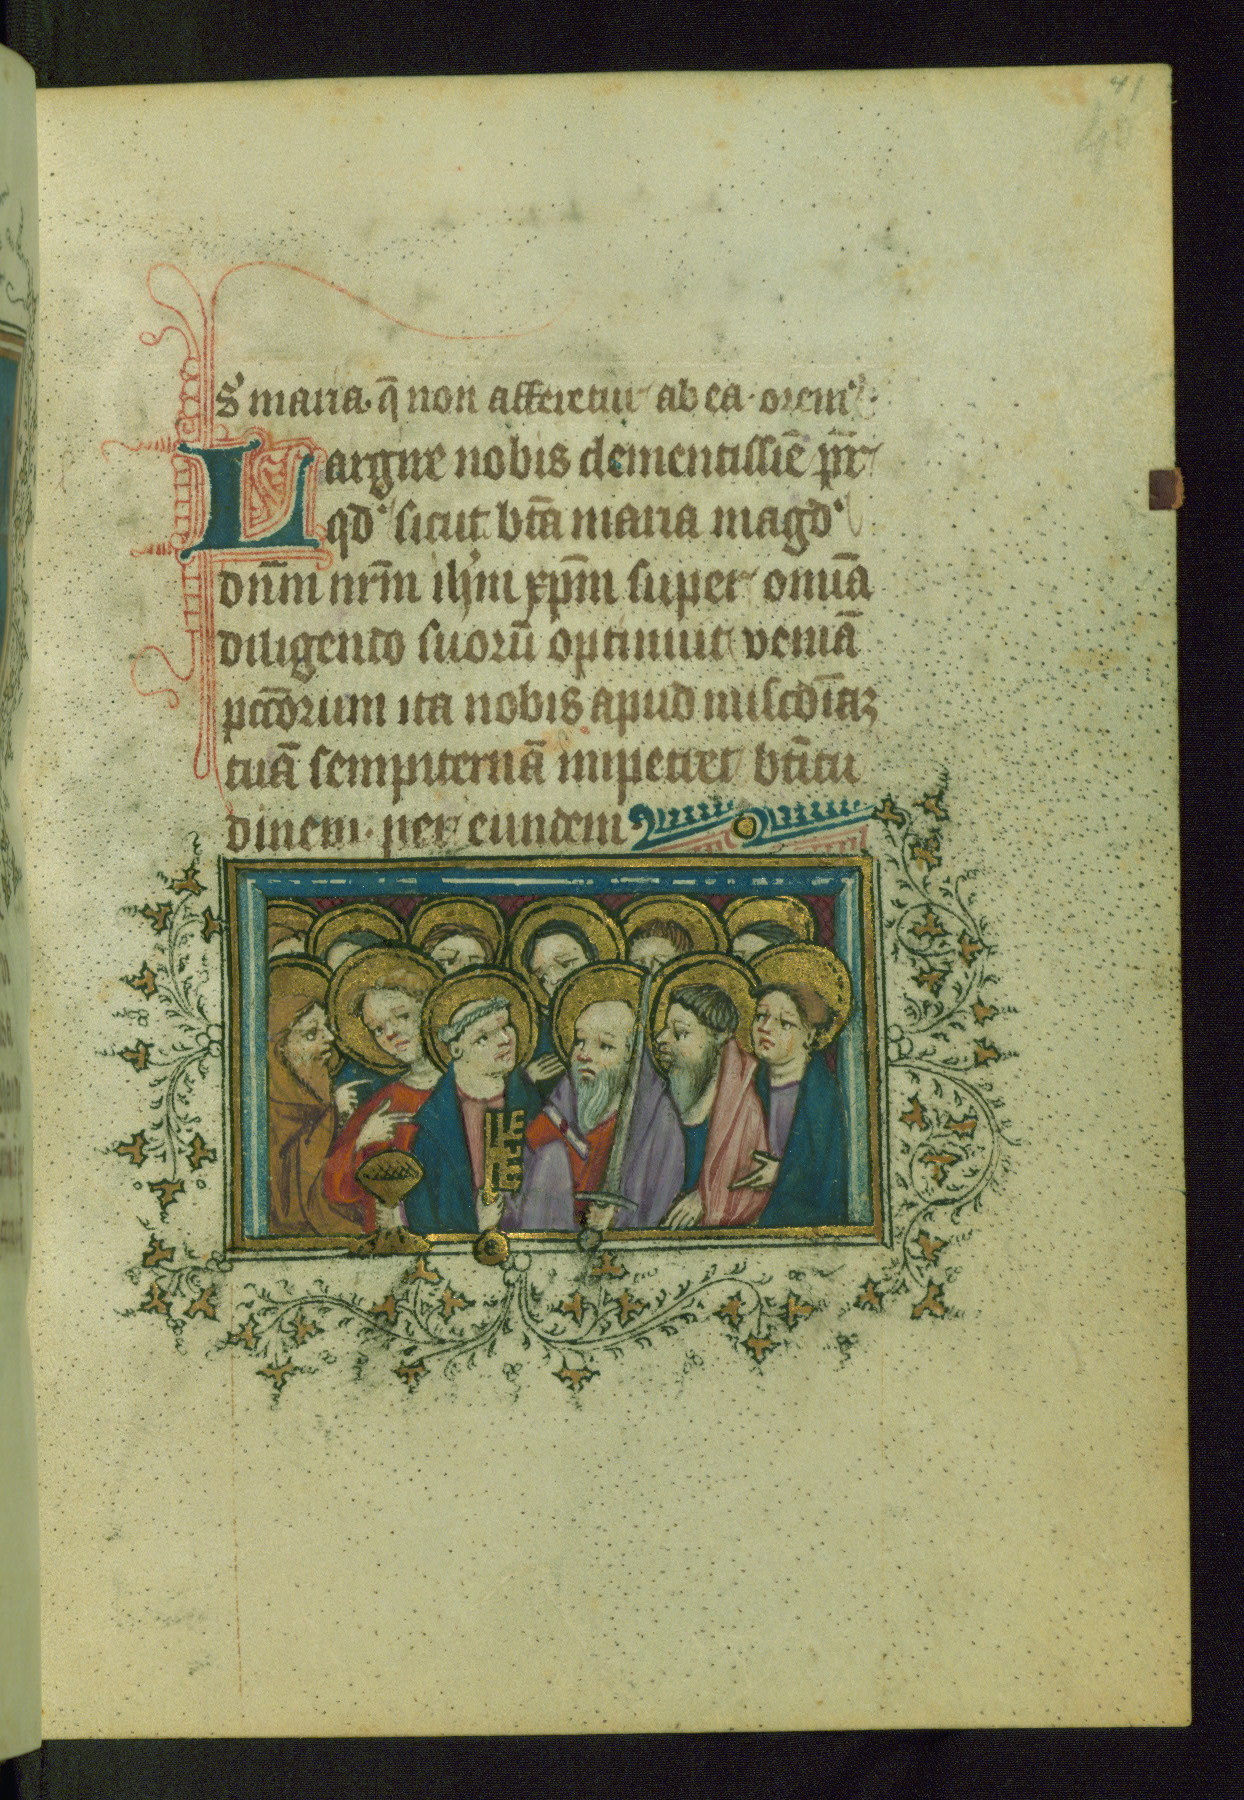 41
40
s' maria. q̄ non afferetur ab ea. orem'.
Largire nobis clementissiē pr̄
qd' sicut bt̄a maria magd'
dn̄m nr̄m ih'm xp̄m super omīa
diligendo suorū optinuit veniā
pcc̄orum ita nobis apud misc̄diaꝫ
tuā sempiternā impetret bt̄itu
dinem. per eundem